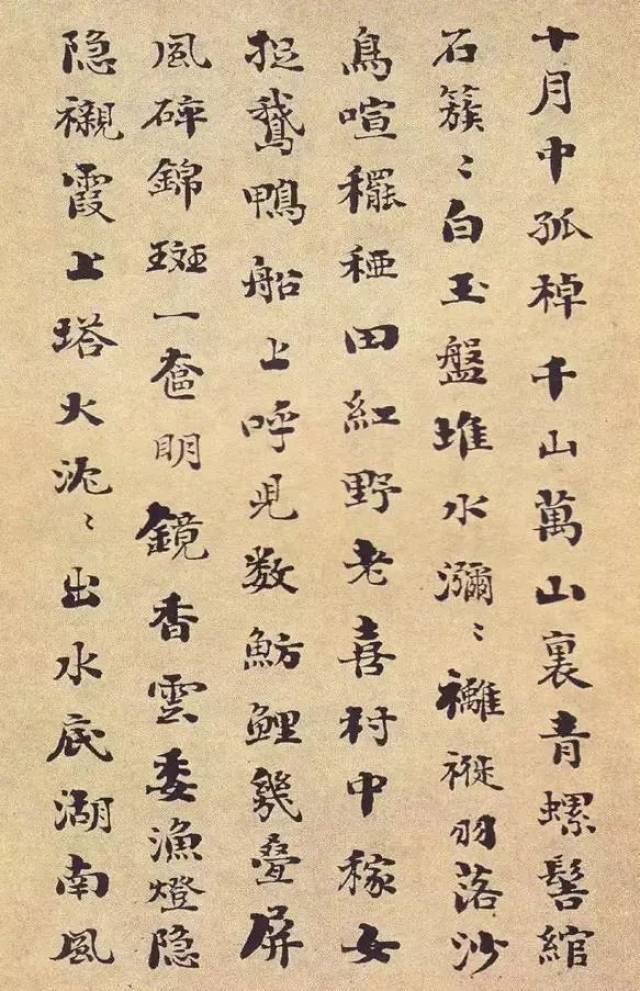 十月中孤棹千山萬山裏青螺髻綰
石簇〻白玉盤堆水瀰〻襳褷羽落沙
鳥喧䆉稏田紅野老喜村中稼女
捉鵝鴨船上呼児数魴鯉幾疊屏
風碎錦斑一奩明鏡香雲委漁燈隐
隐襯霞上塔火沈〻出水底湖南風